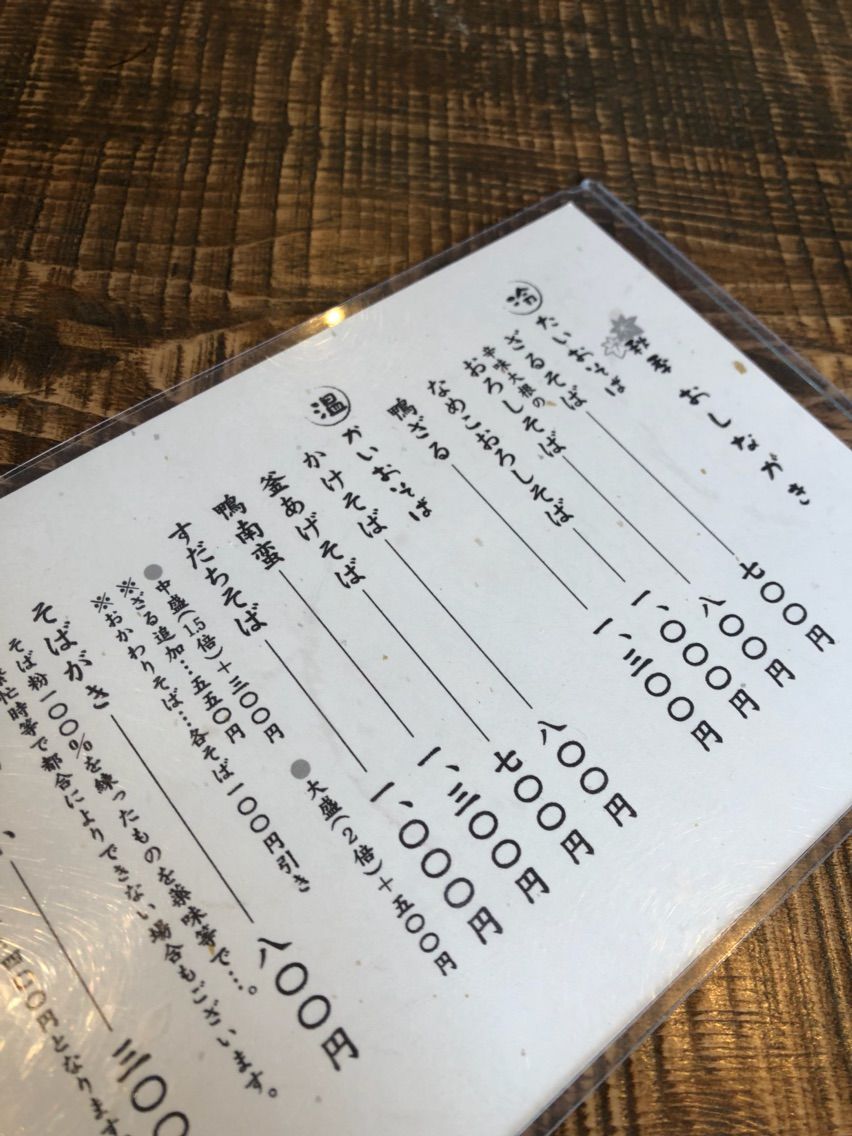 秋季 おしながき
冷たいおそば
ざるそば 七〇〇円
辛味大根の
おろしそば 八〇〇円
なめこおろしそば 一、〇〇〇円
鴨ざる 一、三〇〇円
温かいおそば
かけそば 八〇〇円
釜あげそば 七〇〇円
鴨南蛮 一、三〇〇円
すだちそば 一、〇〇〇円
●中盛(1.5倍)+三〇〇円 ●大盛(2倍)+五〇〇円
※ざる追加…五五〇円
※おかわりそば…各そば一〇〇円引き
そばがき 八〇〇円
そば粉一〇〇%を練ったものを薬味等で…。
忙時等で都合によりできない場合もございます。
三〇〇
円となります